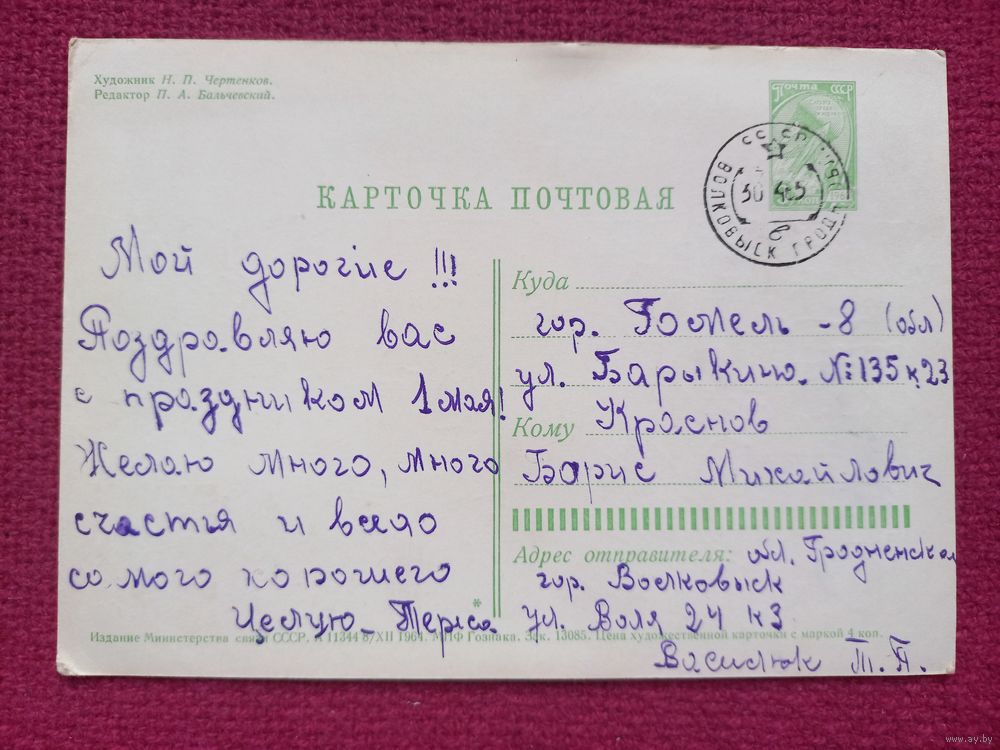 Художник Н. П. Чертенков.
Редактор П. А. Бальчевский.
Почта СССР
КАРТОЧКА ПОЧТОВАЯ
ВОЛКОВЫСК ГРОДН
30 4 65
в
Мой дорогие !!!
Поздравляю вас
с праздником 1 мая!
Желаю много, много
счастья и всего
самого хорошего
Целую Тереса
Куда
гор. Гомель - 8 (обл)
ул. Барыкина № 135 к 23
Кому Краснов
Борис Михайлович
Адрес отправителя: обл. Гродненская
гор. Волковыск
ул. Воля 24 к 3
Василюк Т. П.
Издание Министерства связи СССР. А 11344 8/XII 1964. МПФ Гознака. Зак. 13085. Цена художественной карточки с маркой 4 коп.
www.ay.by